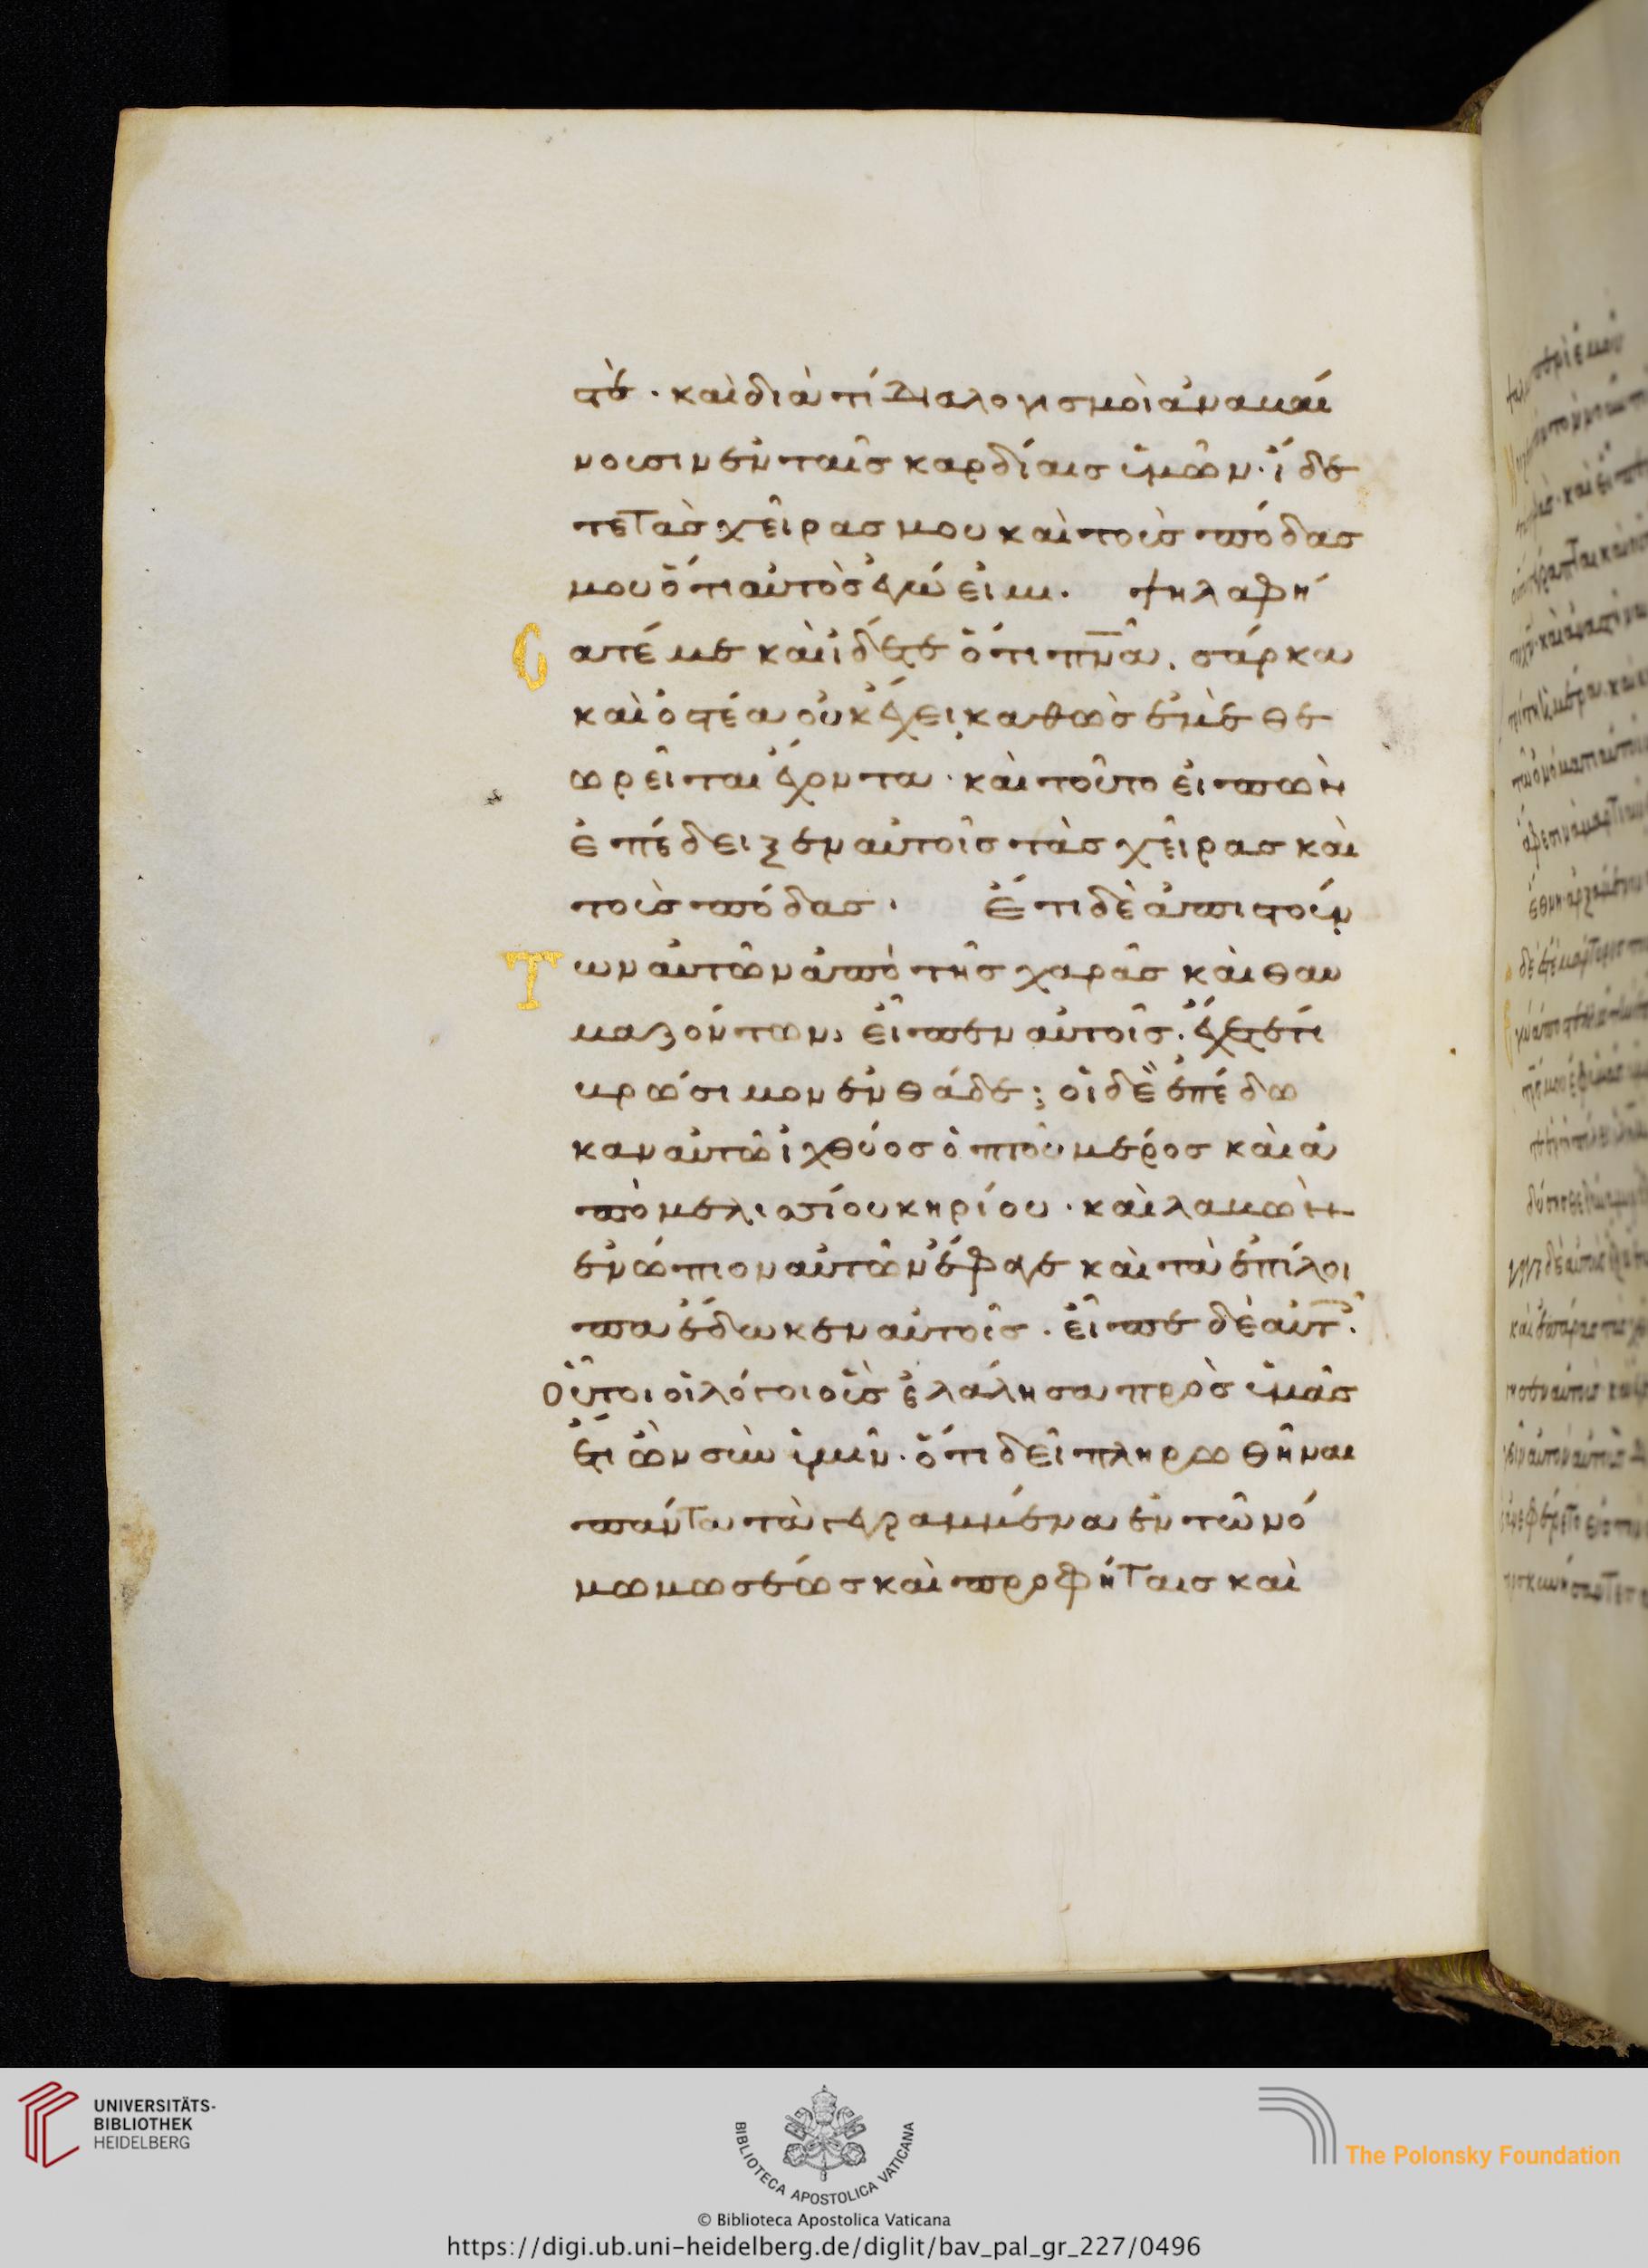 στὲ · καὶ διὰ τί διαλογισμοὶ ἀναβαί
νουσιν ἐν ταῖς καρδίαις ὑμῶν · ἴδε
τε τὰς χεῖρας μου καὶ τοὺς πόδας
μου ὅτι αὐτὸς ἐγώ εἰμι · ψηλαφή
Cατέ με καὶ ἴδετε ὅτι πν̅α, σάρκα
καὶ ὀστέα οὐκ ἔχει, καθὼς ἐμὲ θε
ωρεῖται ἔχοντα · καὶ τοῦτο εἰπὼν
ἐπέδειξεν αὐτοῖς τὰς χεῖρας καὶ
τοὺς πόδας · Ἔτι δὲ ἀπιστούν
Των αὐτῶν ἀπὸ τῆς χαρᾶς καὶ θαυ
μαζόντων, εἶπεν αὐτοῖς · ἔχετέ τι
βρώσιμον ἐνθάδε; οἱ δὲ ἐπέδω
καν αὐτῶ ἰχθύος ὀπτοῦ μέρος καὶ ἀ
πὸ μελισσίου κηρίου · καὶ λαβὼν
ἐνώπιον αὐτῶν ἔφαγε καὶ τὰ ἐπίλοι
πα ἔδωκεν αὐτοῖς · εἶπε δὲ αὐτ ·
Οὗτοι οἱ λόγοι οὓς ἐλάλησα πρὸς ὑμᾶς
ἔτι ὢν σὺν ὑμῖν · ὅτι δεῖ πληρωθῆναι
πάντα τὰ γεγραμμένα ἐν τῶ νό
μω μωσέως καὶ προφήταις καὶ
UNIVERSITÄTS-
BIBLIOTHEK
HEIDELBERG
BIBLIOTECA APOSTOLICA VATICANA
The Polonsky Foundation
© Biblioteca Apostolica Vaticana
https://digi.ub.uni-heidelberg.de/diglit/bav_pal_gr_227/0496